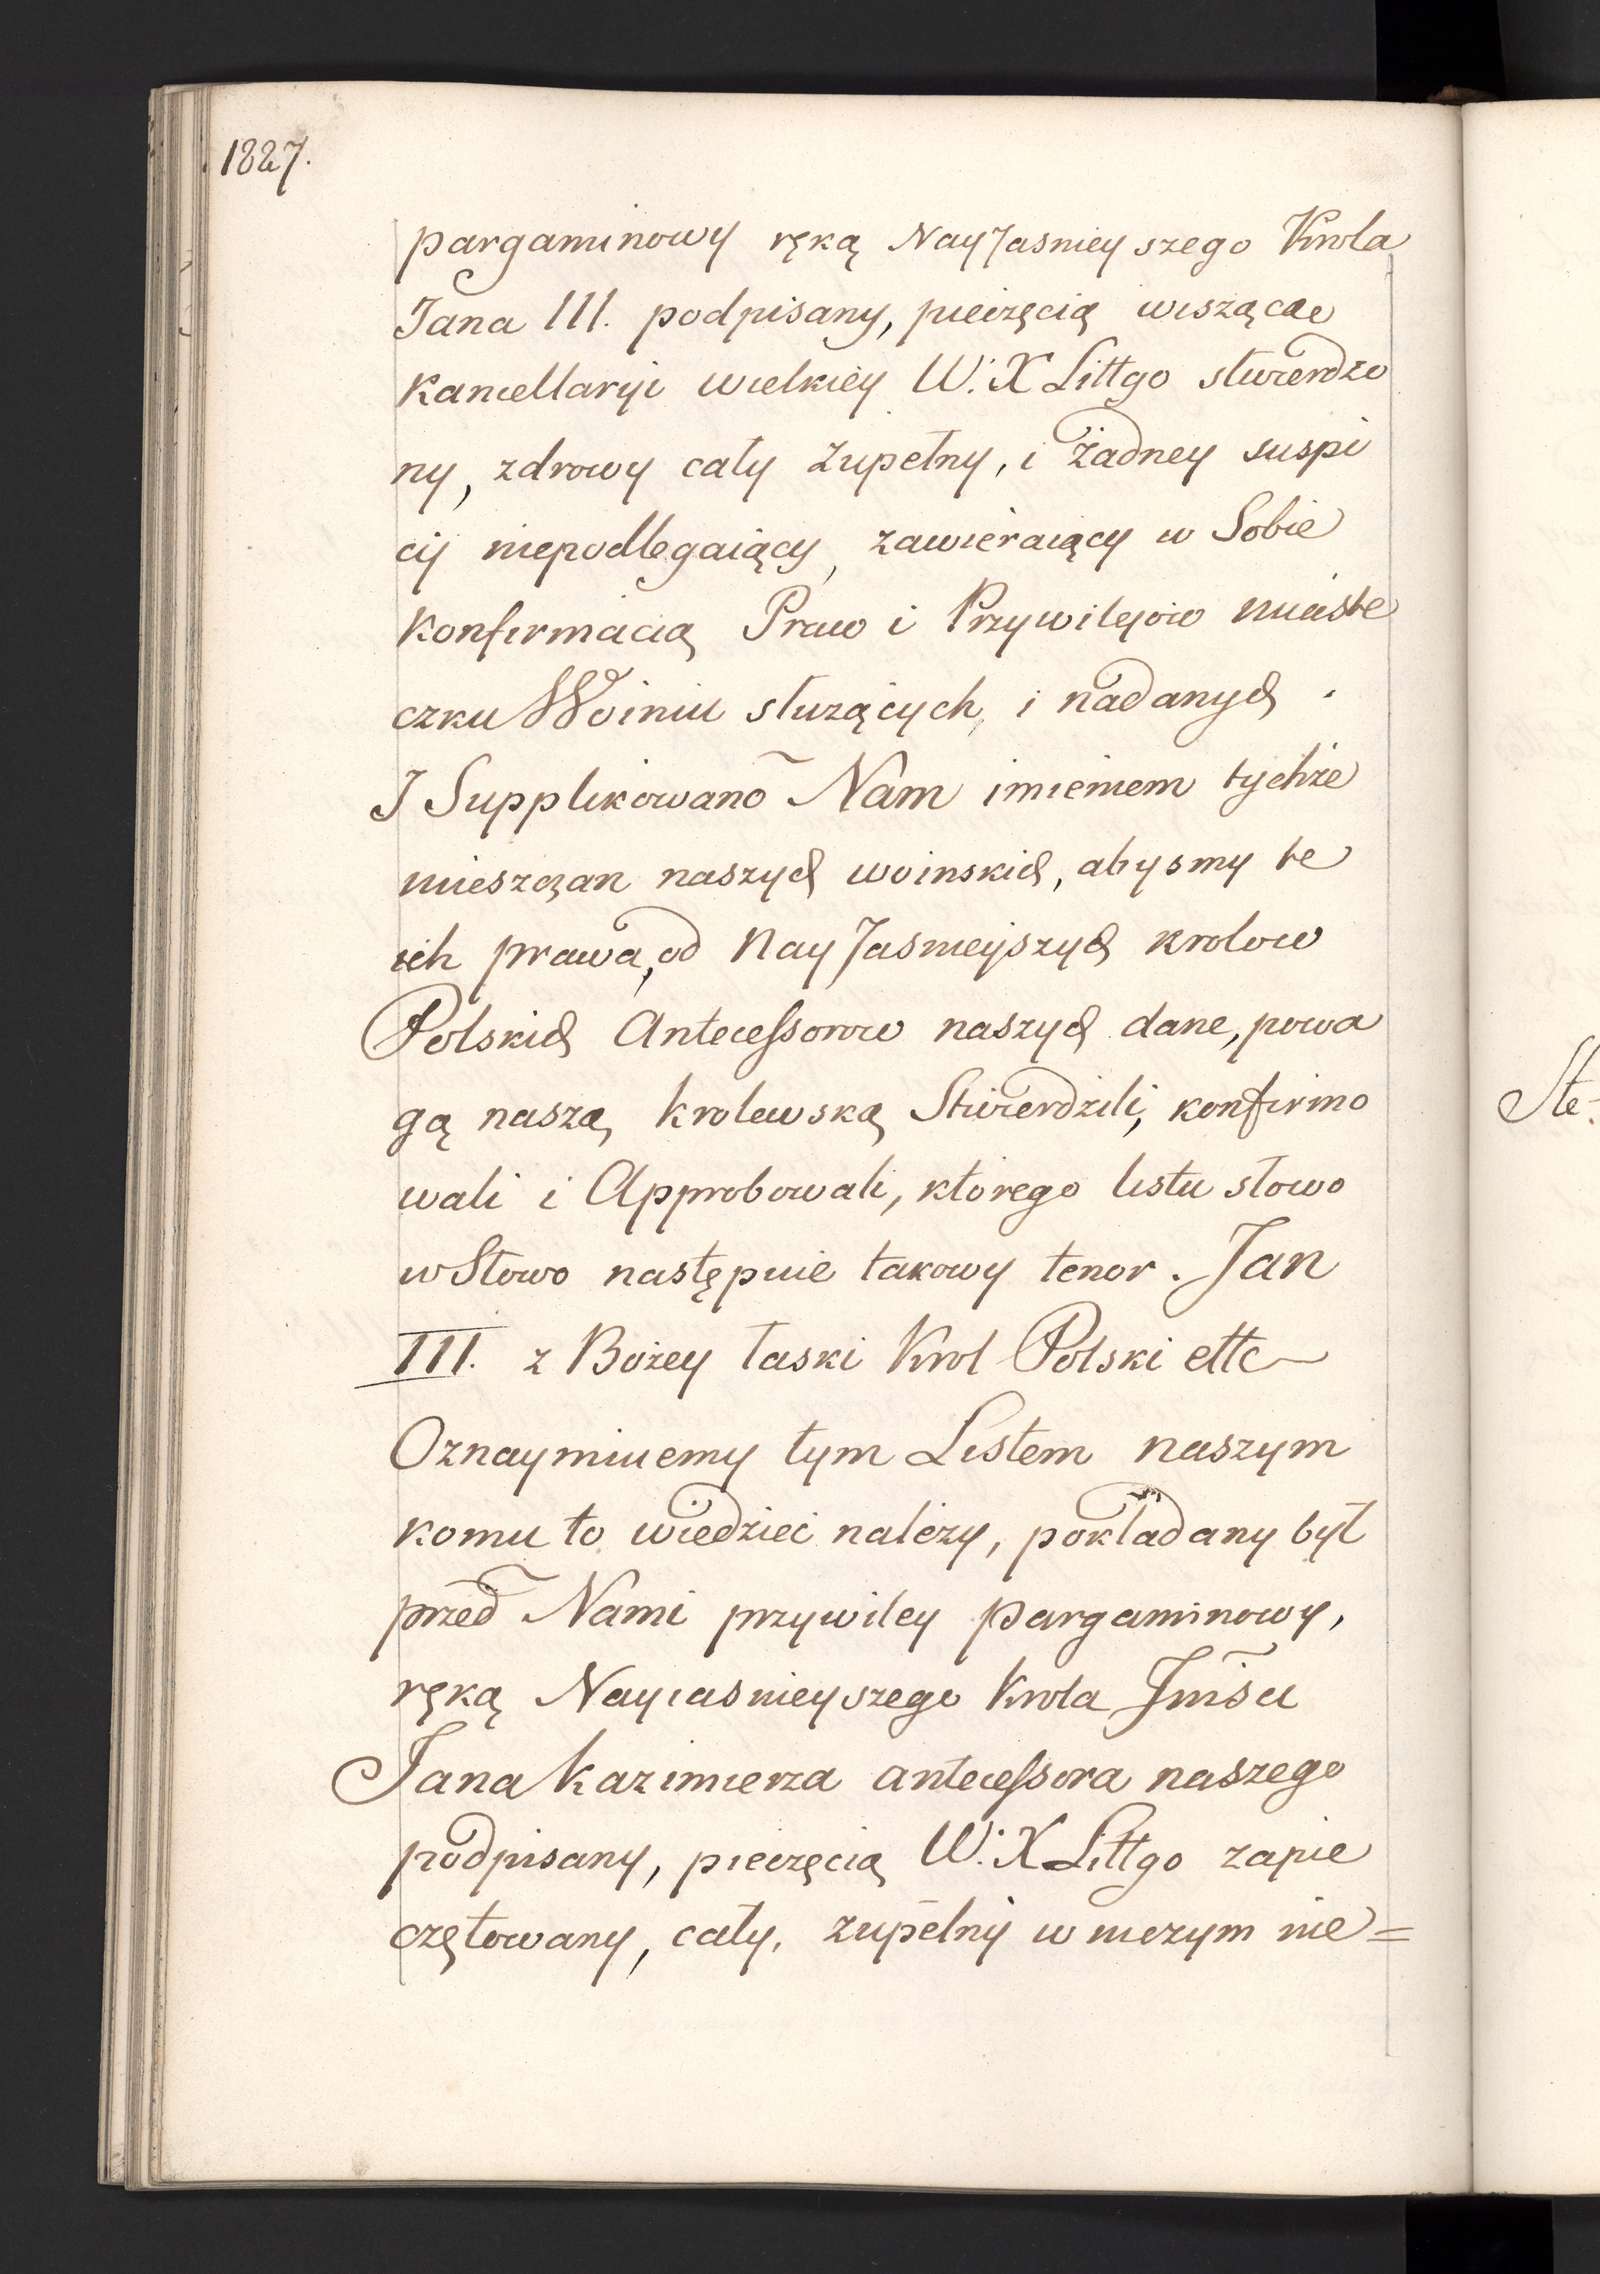 1827.
pargaminowy ręką NayJasnieyszego Krola
Jana III. podpisany, pieczęcią wiszącae
Kancellaryi wielkiey W. X Littgo stwierdzo
ny, zdrowy cały zupełny, i żadney suspi
cij niepodlegaiący, zawieraiący w Sobie
Konfirmacią Praw i Przywilejow miaste
czku Woiniu słuzących, i nadanych.
I Supplikowano Nam imieniem tychże
mieszczan naszych woinskich, abysmy te
ich prawa, od NayJasniejszych krolow
Polskich Antecessorow naszych dane, powa
gą naszą krolewską Stwierdzili, konfirmo
wali i Approbowali, ktorego listu słowo
w Słowo następuie takowy tenor. Jan
III. z Bożey łaski Krol Polski ettc
Oznaymiuemy tym Listem naszym
komu to wiedziec należy, pokładany był
przed Nami przywiley pargaminowy,
ręką Nayiasnieyszego Krola Jmsci
Jana Kazimierza antecessora naszego
podpisany, pieczęcią W. X Littgo zapie
czętowany, cały, zupełny w niczym nie=
Ste-